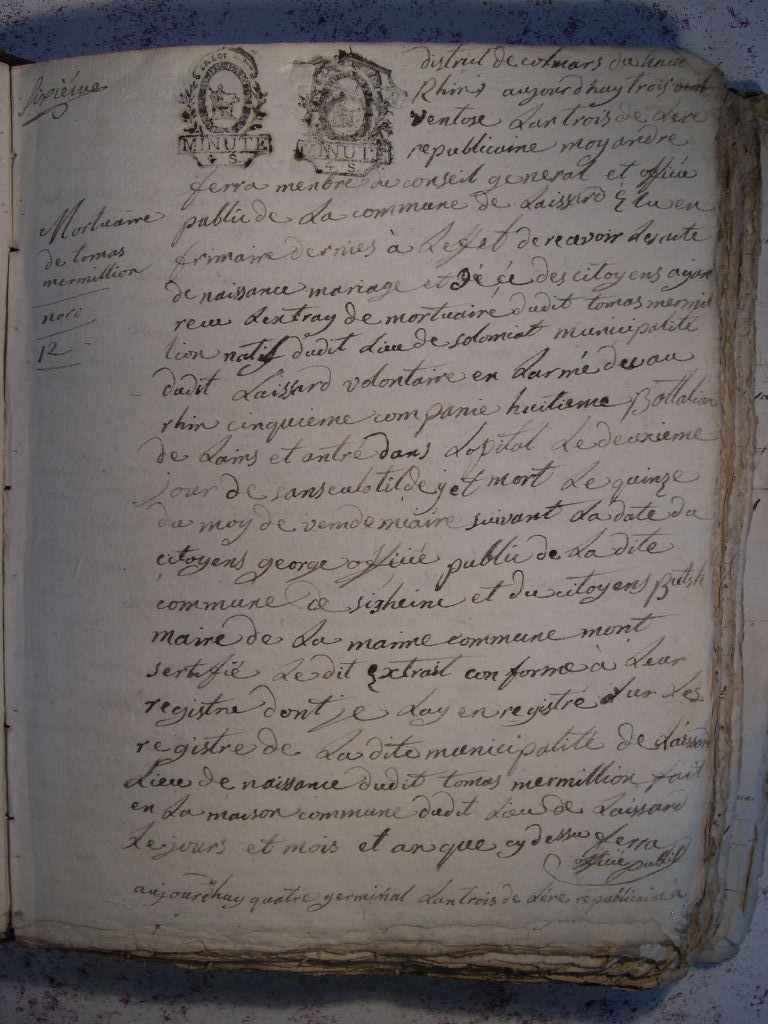 sixiéme
MINUTE
MINUTE
district de colmars du haut
Rhins aujourdhuy trois
ventose Lan trois de Lere
republicaine moy andre
ferra menbre du conseil general et officié
public de La commune de Laissard Elu en
frimaire dernies à Leffet de recevoir Les acte
de naissance mariage et décé des citoyens ayan
recu Lextray de mortuaire dudit tomas mermil
lion natif dudit Lieu de solomiat municipalite
dudit Laissard volontaire en Larmé du au
rhin cinquieme companie huitieme Battalion
de Lains et antré dans Lopital Le deuxieme
jour de sanseulotilde et mort Le quinze
du moy de vemdemiaire suivant La date du
citoyens george officié public de La dite
commune de sixheine et du citoyens
maire de La maime commune mont
sertifié Le dit Extrait con forme à Leur
registre dont je Lay en registré sur Les
registre de La dite municipalite de Laissard
Lieu de naissance dudit tomas mermillion fait
en La maison commune dudit Lieu de Laissard
Le jours et mois et an que cy dessu ferra
officié public
aujourdhuy quatre germinal Lan trois de Lére republicaine à
Mortuaire
de tomas
mermillion
noro
12